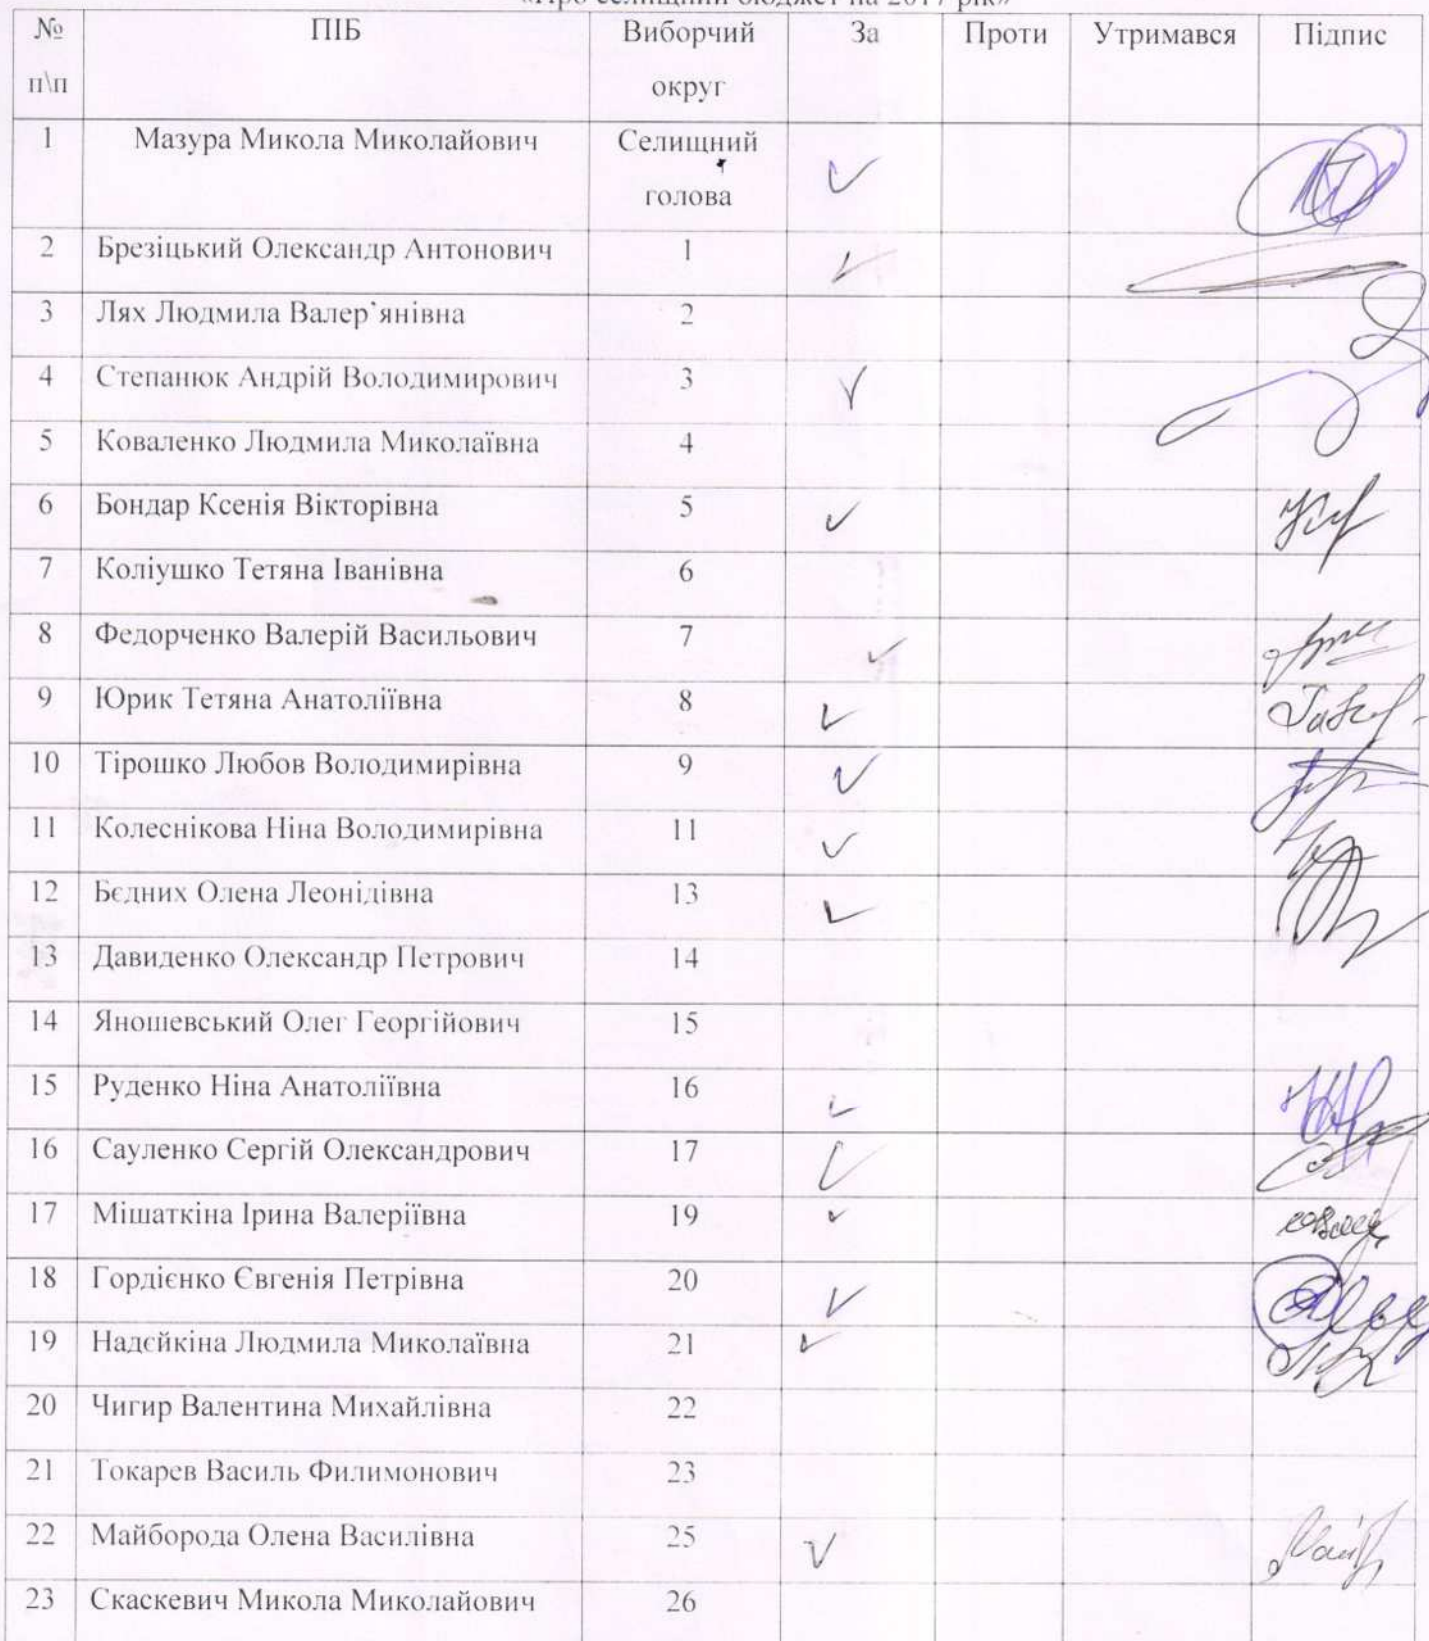 «Про селищний бюджет на 2017 рік»
№ п\п ПІБ Виборчий округ За Проти Утримався Підпис
1 Мазура Микола Миколайович Селищний голова
2 Брезіцький Олександр Антонович 1
3 Лях Людмила Валер`янівна 2
4 Степанюк Андрій Володимирович 3
5 Коваленко Людмила Миколаївна 4
6 Бондар Ксенія Вікторівна 5
7 Коліушко Тетяна Іванівна 6
8 Федорченко Валерій Васильович 7
9 Юрик Тетяна Анатоліївна 8
10 Тірошко Любов Володимирівна 9
11 Колеснікова Ніна Володимирівна 11
12 Бєдних Олена Леонідівна 13
13 Давиденко Олександр Петрович 14
14 Яношевський Олег Георгійович 15
15 Руденко Ніна Анатоліївна 16
16 Сауленко Сергій Олександрович 17
17 Мішаткіна Ірина Валеріївна 19
18 Гордієнко Євгенія Петрівна 20
19 Надєйкіна Людмила Миколаївна 21
20 Чигир Валентина Михайлівна 22
21 Токарев Василь Филимонович 23
22 Майборода Олена Василівна 25
23 Скаскевич Микола Миколайович 26